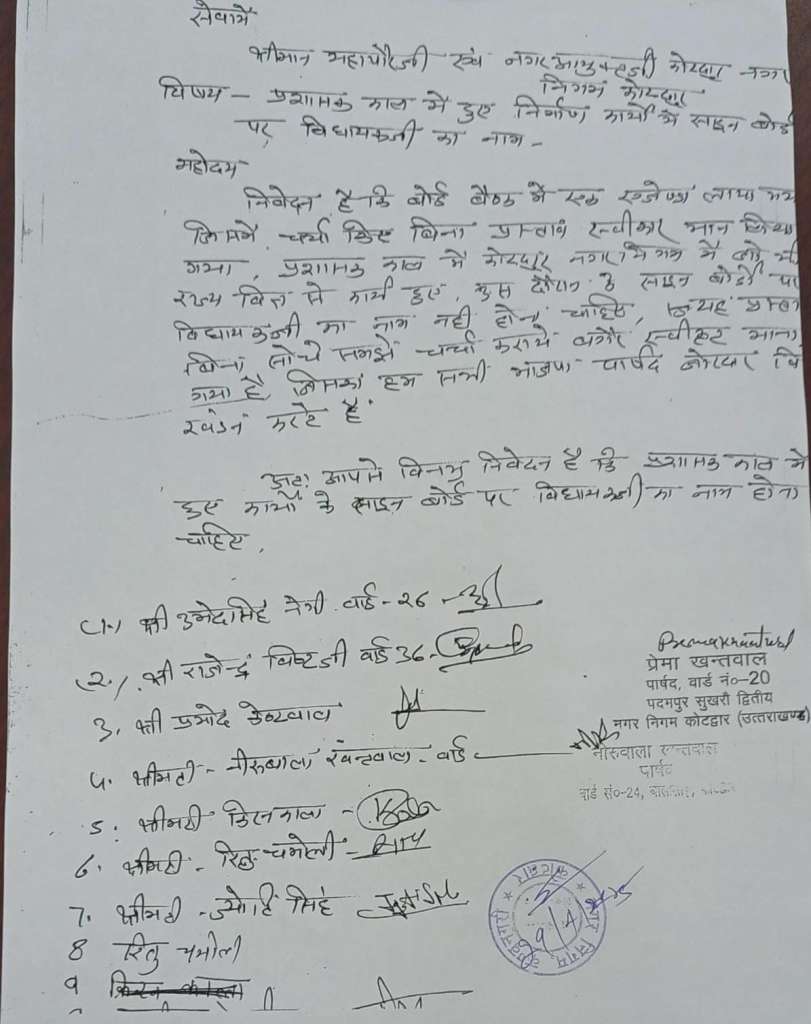 सेवामें
श्रीमान महापौरजी एवं नगर आयुक्तजी कोटद्वार नगर
निगम कोटद्वार
विषय - प्रशासक काल में हुए निर्माण कार्यों के साइन बोर्ड
पर विधायकजी का नाम -
महोदय
निवेदन है कि बोर्ड बैठक में एक एजेण्डा लाया गया
जिसमें चर्चा किए बिना प्रस्ताव स्वीकार मान लिया
गया, प्रशासक काल में कोटद्वार नगर निगम में जो भी
राज्य वित्त से कार्य हुए, उस दौरान के साइन बोर्डों पर
विधायकजी का नाम नहीं होना चाहिए, यह प्रस्ताव
बिना सोचे समझे चर्चा कराये बगैर स्वीकार माना
गया है, जिसका हम सभी भाजपा पार्षद कोटद्वार
खंडन करते हैं
अतः आपसे विनम्र निवेदन है कि प्रशासक काल में
हुए कार्यों के साइन बोर्ड पर विधायकजी का नाम होना
चाहिए,
(1.) श्री उमेदसिंह नेगी वार्ड - 26
(2.) श्री राजेन्द्र बिष्टजी वार्ड 36 -
3. श्री प्रमोद केष्टवाल
प्रेमा खन्तवाल
पार्षद, वार्ड नं०-20
पदमपुर सुखरौ द्वितीय
नगर निगम कोटद्वार (उत्तराखण्ड)
4. श्रीमती - नीरूबाला खंतवाल - वार्ड
नीरुवाला खन्तवाल
पार्षद
वार्ड सं०-24,
5. श्रीमती किरन काला -
6. श्रीमती - रितु चमोली -
7. श्रीमती - ज्योति सिंह
नगर निगम कोटद्वार
8 रितु चमोली
9